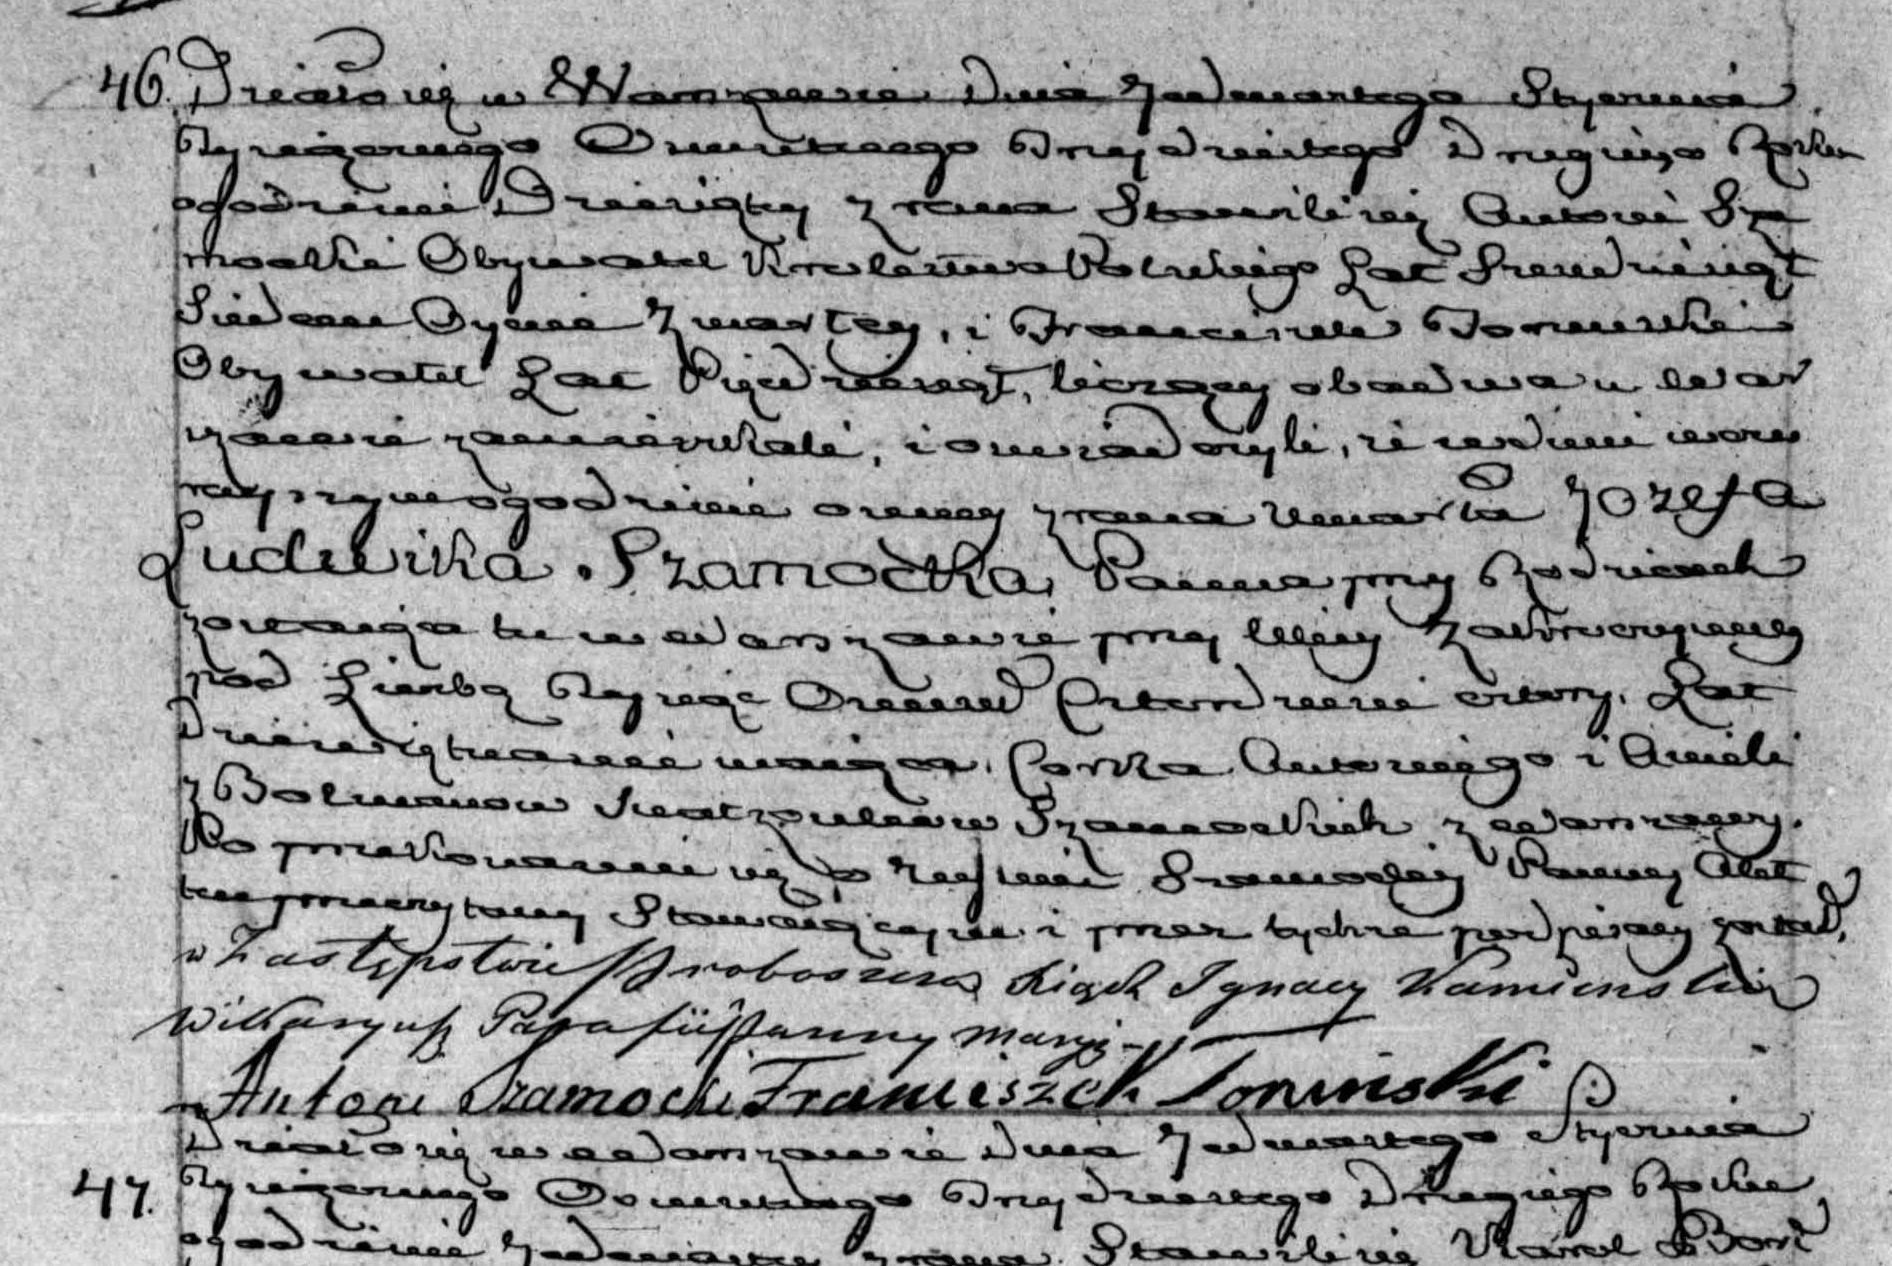 46. Działo się w Warszawie Dnia Jedenastego Stycznia
Tysiącznego Osmsetnego Trzydziestego Drugiego Roku
o godzinie Dziewiątey z rana Stawili się Antoni Sza
mocki Obywatel Krolestwa Polskiego Lat Szesdziesiąt
Siedem Oyciec Zmarłey, i Franciszek Toruński
Obywatel Lat Pięćdziesiąt, liczący obadwa w War
szawie zamieszkali, i oswiadczyli, iż w dniu wczo
rayszym o godzinie osmey z rana Umarła Jozefa
Ludwika Szamocka, Panna przy Rodzicach
zostaiąca tu w Warszawie przy Ulicy Zakroczymskiey
pod Liczbą Tysiąc Osmset Czterdzieści cztery, Lat
Dziewiętnaście maiąca, Corka Antoniego i Anieli
z Szamockich z Warszawy.
Po przekonaniu się o zeyściu Szamockiey Panny Akt
ten przeczytany Stawaiącym i przez tychże podpisany został.
w Zastępstwie Proboszcza Xiądz Ignacy Kamienski
Wikaryusz Parafii Panny Maryi
Antoni Szamocki Franciszek Toruński
Działo się w Warszawie Dnia Jedenastego Stycznia
47. Tysiącznego Osmsetnego Trzydziestego Drugiego Roku,
o godzinie z rana Stawili się Karol